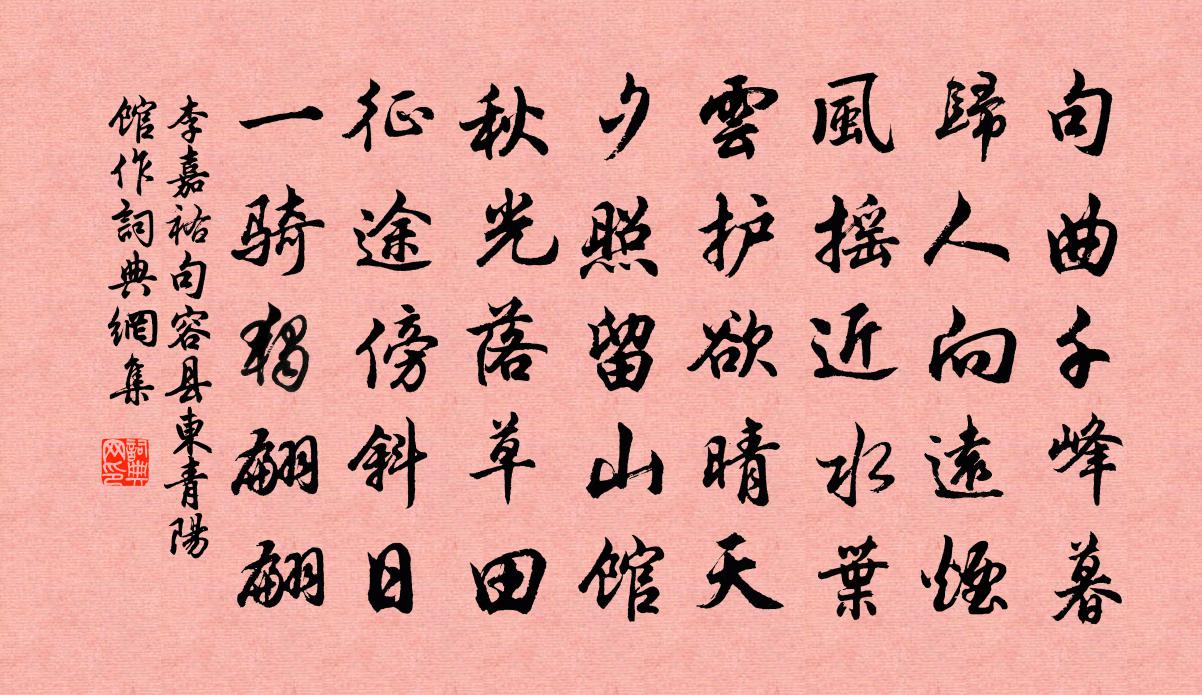 句曲千峰暮
歸人向遠煙
風摇近水葉
雲护欲晴天
夕照留山馆
秋光落草田
征途傍斜日
一骑獨翩翩
李嘉祐句容县東青陽
馆作詞典網集
詞典网印